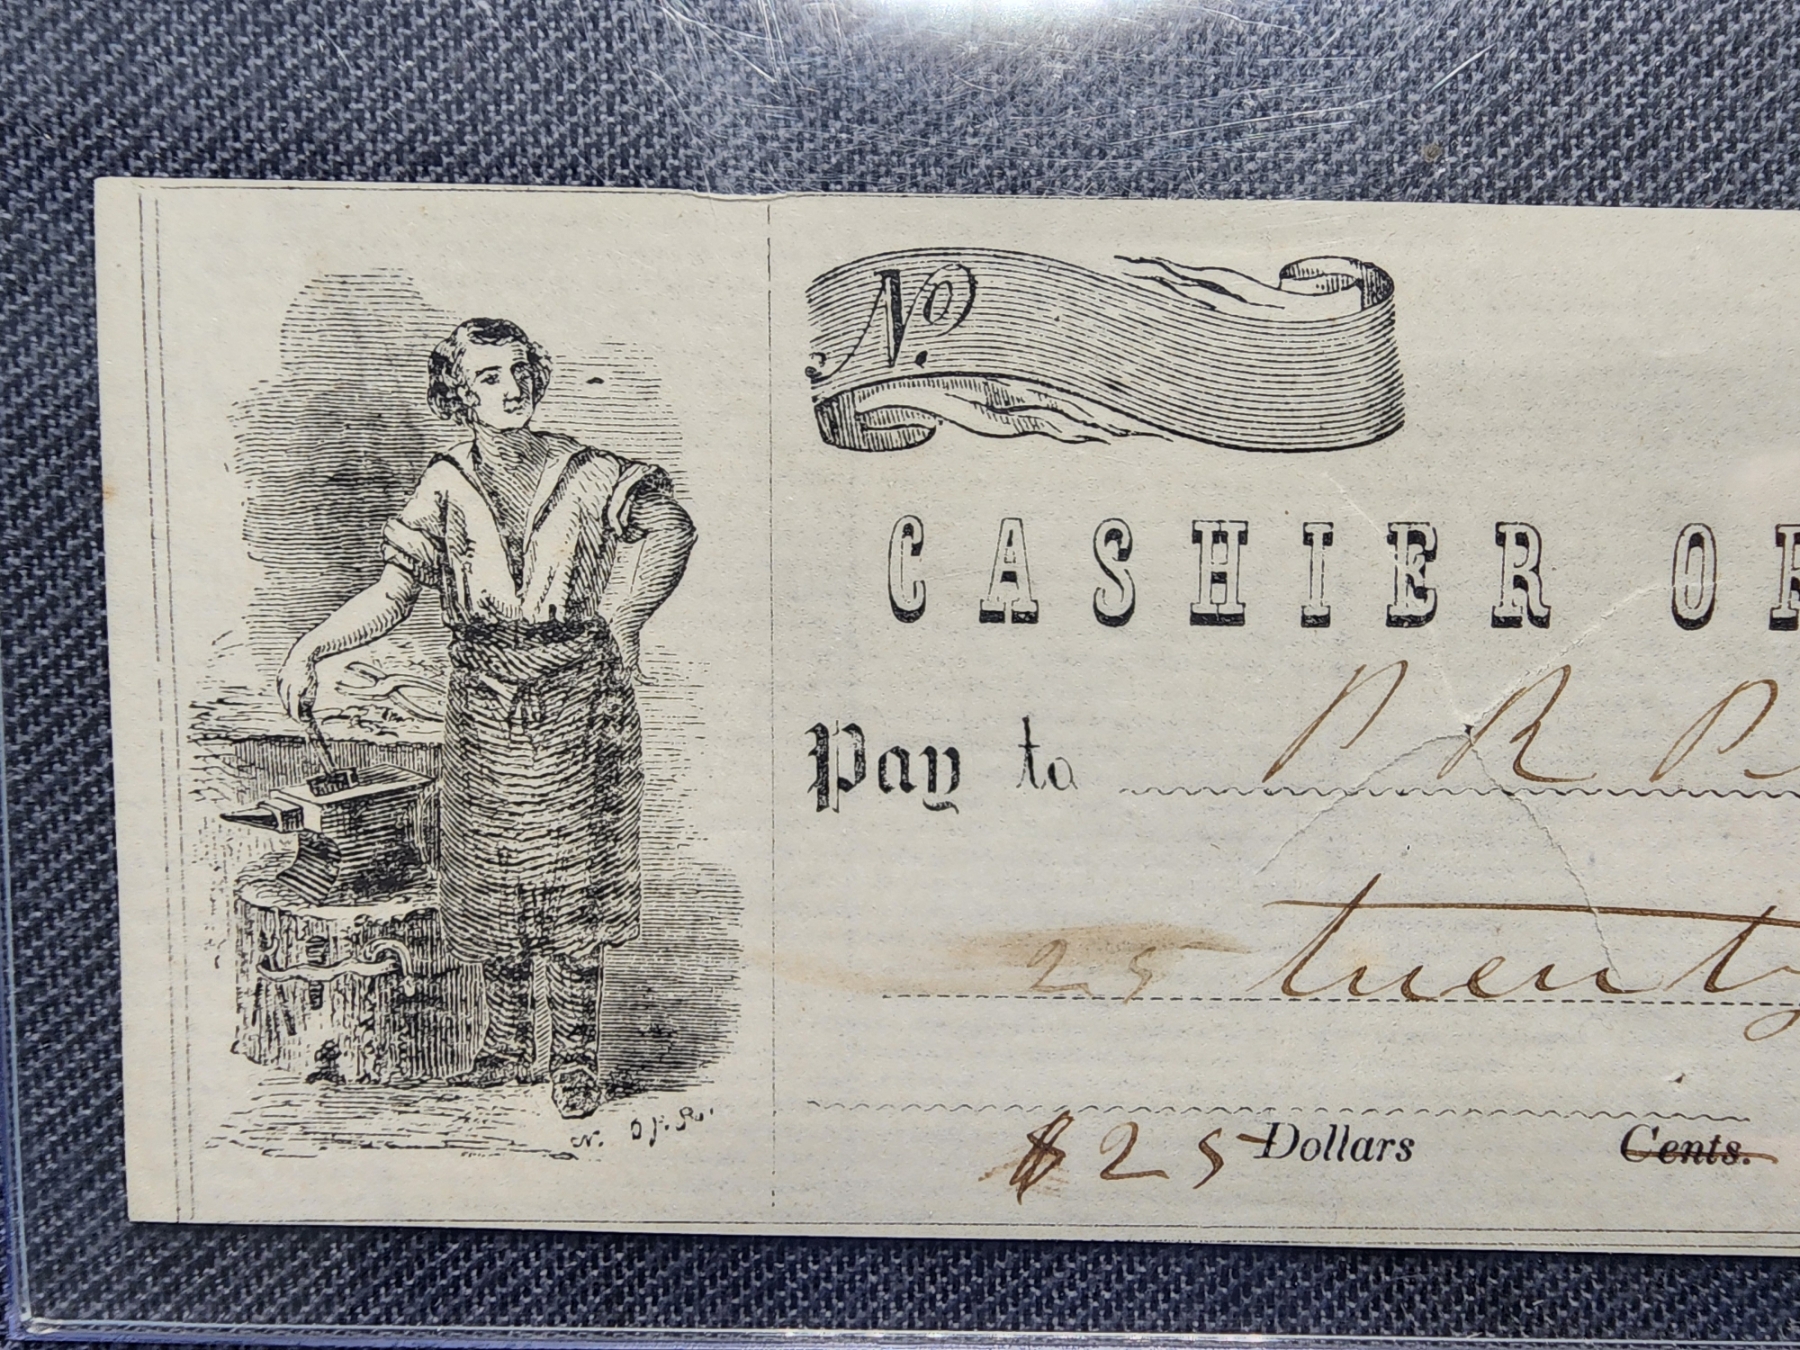 No.
CASHIER OF
Pay to P R P
25 twenty
$25 Dollars Cents.
N. O